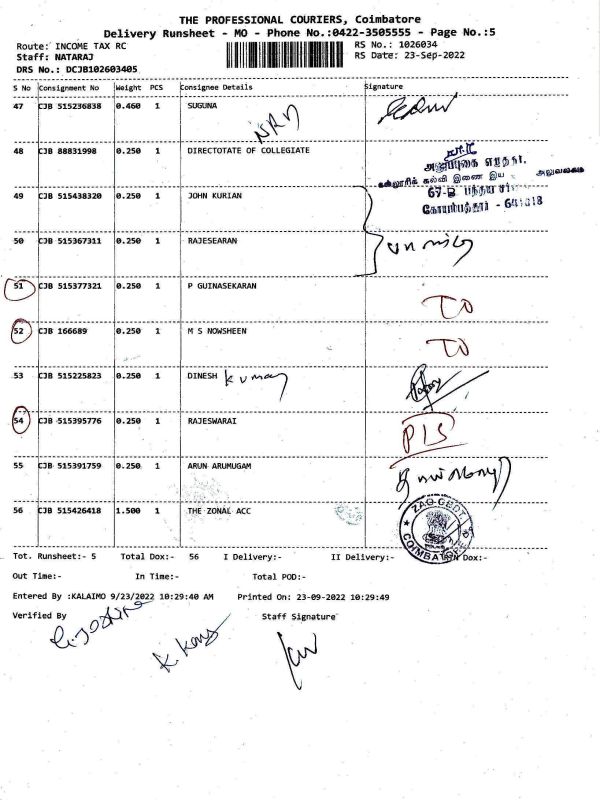 THE PROFESSIONAL COURIERS, Coimbatore
Delivery Runsheet - MO - Phone No.:0422-3505555 - Page No.:5
Route: INCOME TAX RC RS No.: 1026034
Staff: NATARAJ RS Date: 23-Sep-2022
DRS No.: DCJB102603405
S No Consignment No Weight PCS Consignee Details Signature
47 CJB 515236838 0.460 1 SUGUNA
NRN
48 CJB 88831998 0.250 1 DIRECTOTATE OF COLLEGIATE
கல்லூரிக் கல்வி இணை இய அலுவலகம்
49 CJB 515438320 0.250 1 JOHN KURIAN
கோயம்புத்தூர் - 641018
50 CJB 515367311 0.250 1 RAJESEARAN
51 CJB 515377321 0.250 1 P GUINASEKARAN
TO
52 CJB 166689 0.250 1 M S NOWSHEEN
TO
53 CJB 515225823 0.250 1 DINESH kumar
54 CJB 515395776 0.250 1 RAJESWARAI
P/S
55 CJB 515391759 0.250 1 ARUN ARUMUGAM
56 CJB 515426418 1.500 1 THE ZONAL ACC
ZAO CBDT
COIMBATORE
Tot. Runsheet:- 5 Total Dox:- 56 I Delivery:- II Delivery:- Dox:-
Out Time:- In Time:- Total POD:-
Entered By :KALAIMO 9/23/2022 10:29:40 AM Printed On: 23-09-2022 10:29:49
Verified By Staff Signature